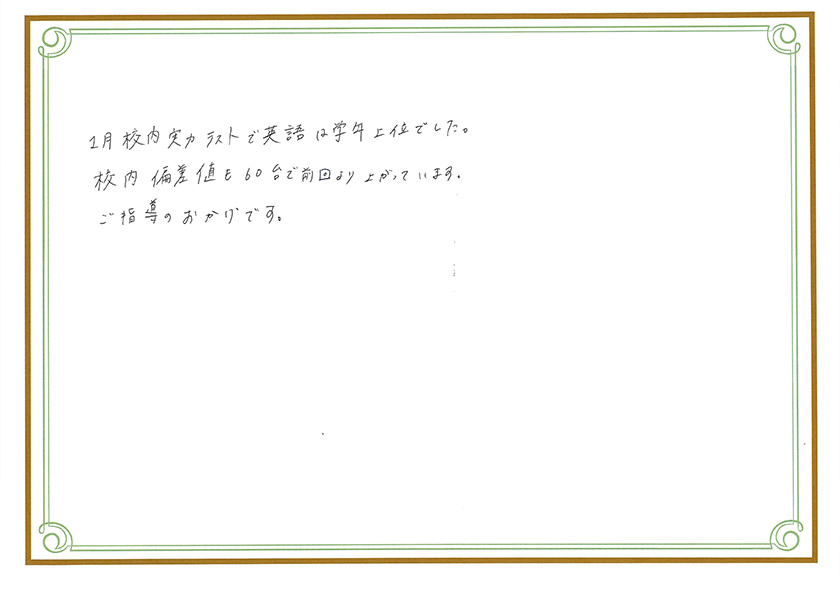 1月校内実力テストで英語は学年上位でした。
校内偏差値も60台で前回より上がっています。
ご指導のおかげです。